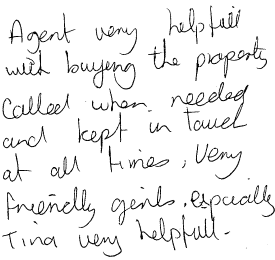 Agent very helpfull
with buying the property
Called when needed
and kept in touch
at all times, very
friendly girls, especially
Tina very helpfull.